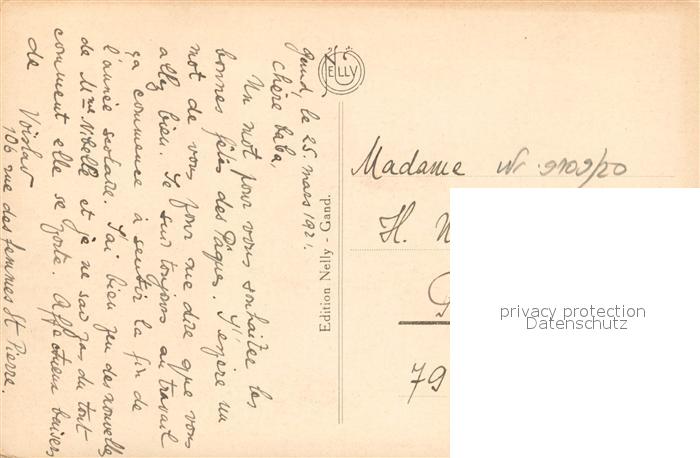 Gand, le 25 mars 1921.
Chère Baba,
Un mot pour vous souhaiter les
bonnes fêtes des Pâques. J'espère un
mot de vous pour me dire que vous
allez bien. Je suis toujours au travail
ça commence à sentir la fin de
l'année scolaire. J'ai bien peu des nouvelles
de Mme Nibelle et je ne sais pas du tout
comment elle se porte. Affectueux baisers
de Voislav
106 rue des femmes St Pierre.
NELLY
Edition Nelly - Gand.
Madame
H.
79
privacy protection
Datenschutz